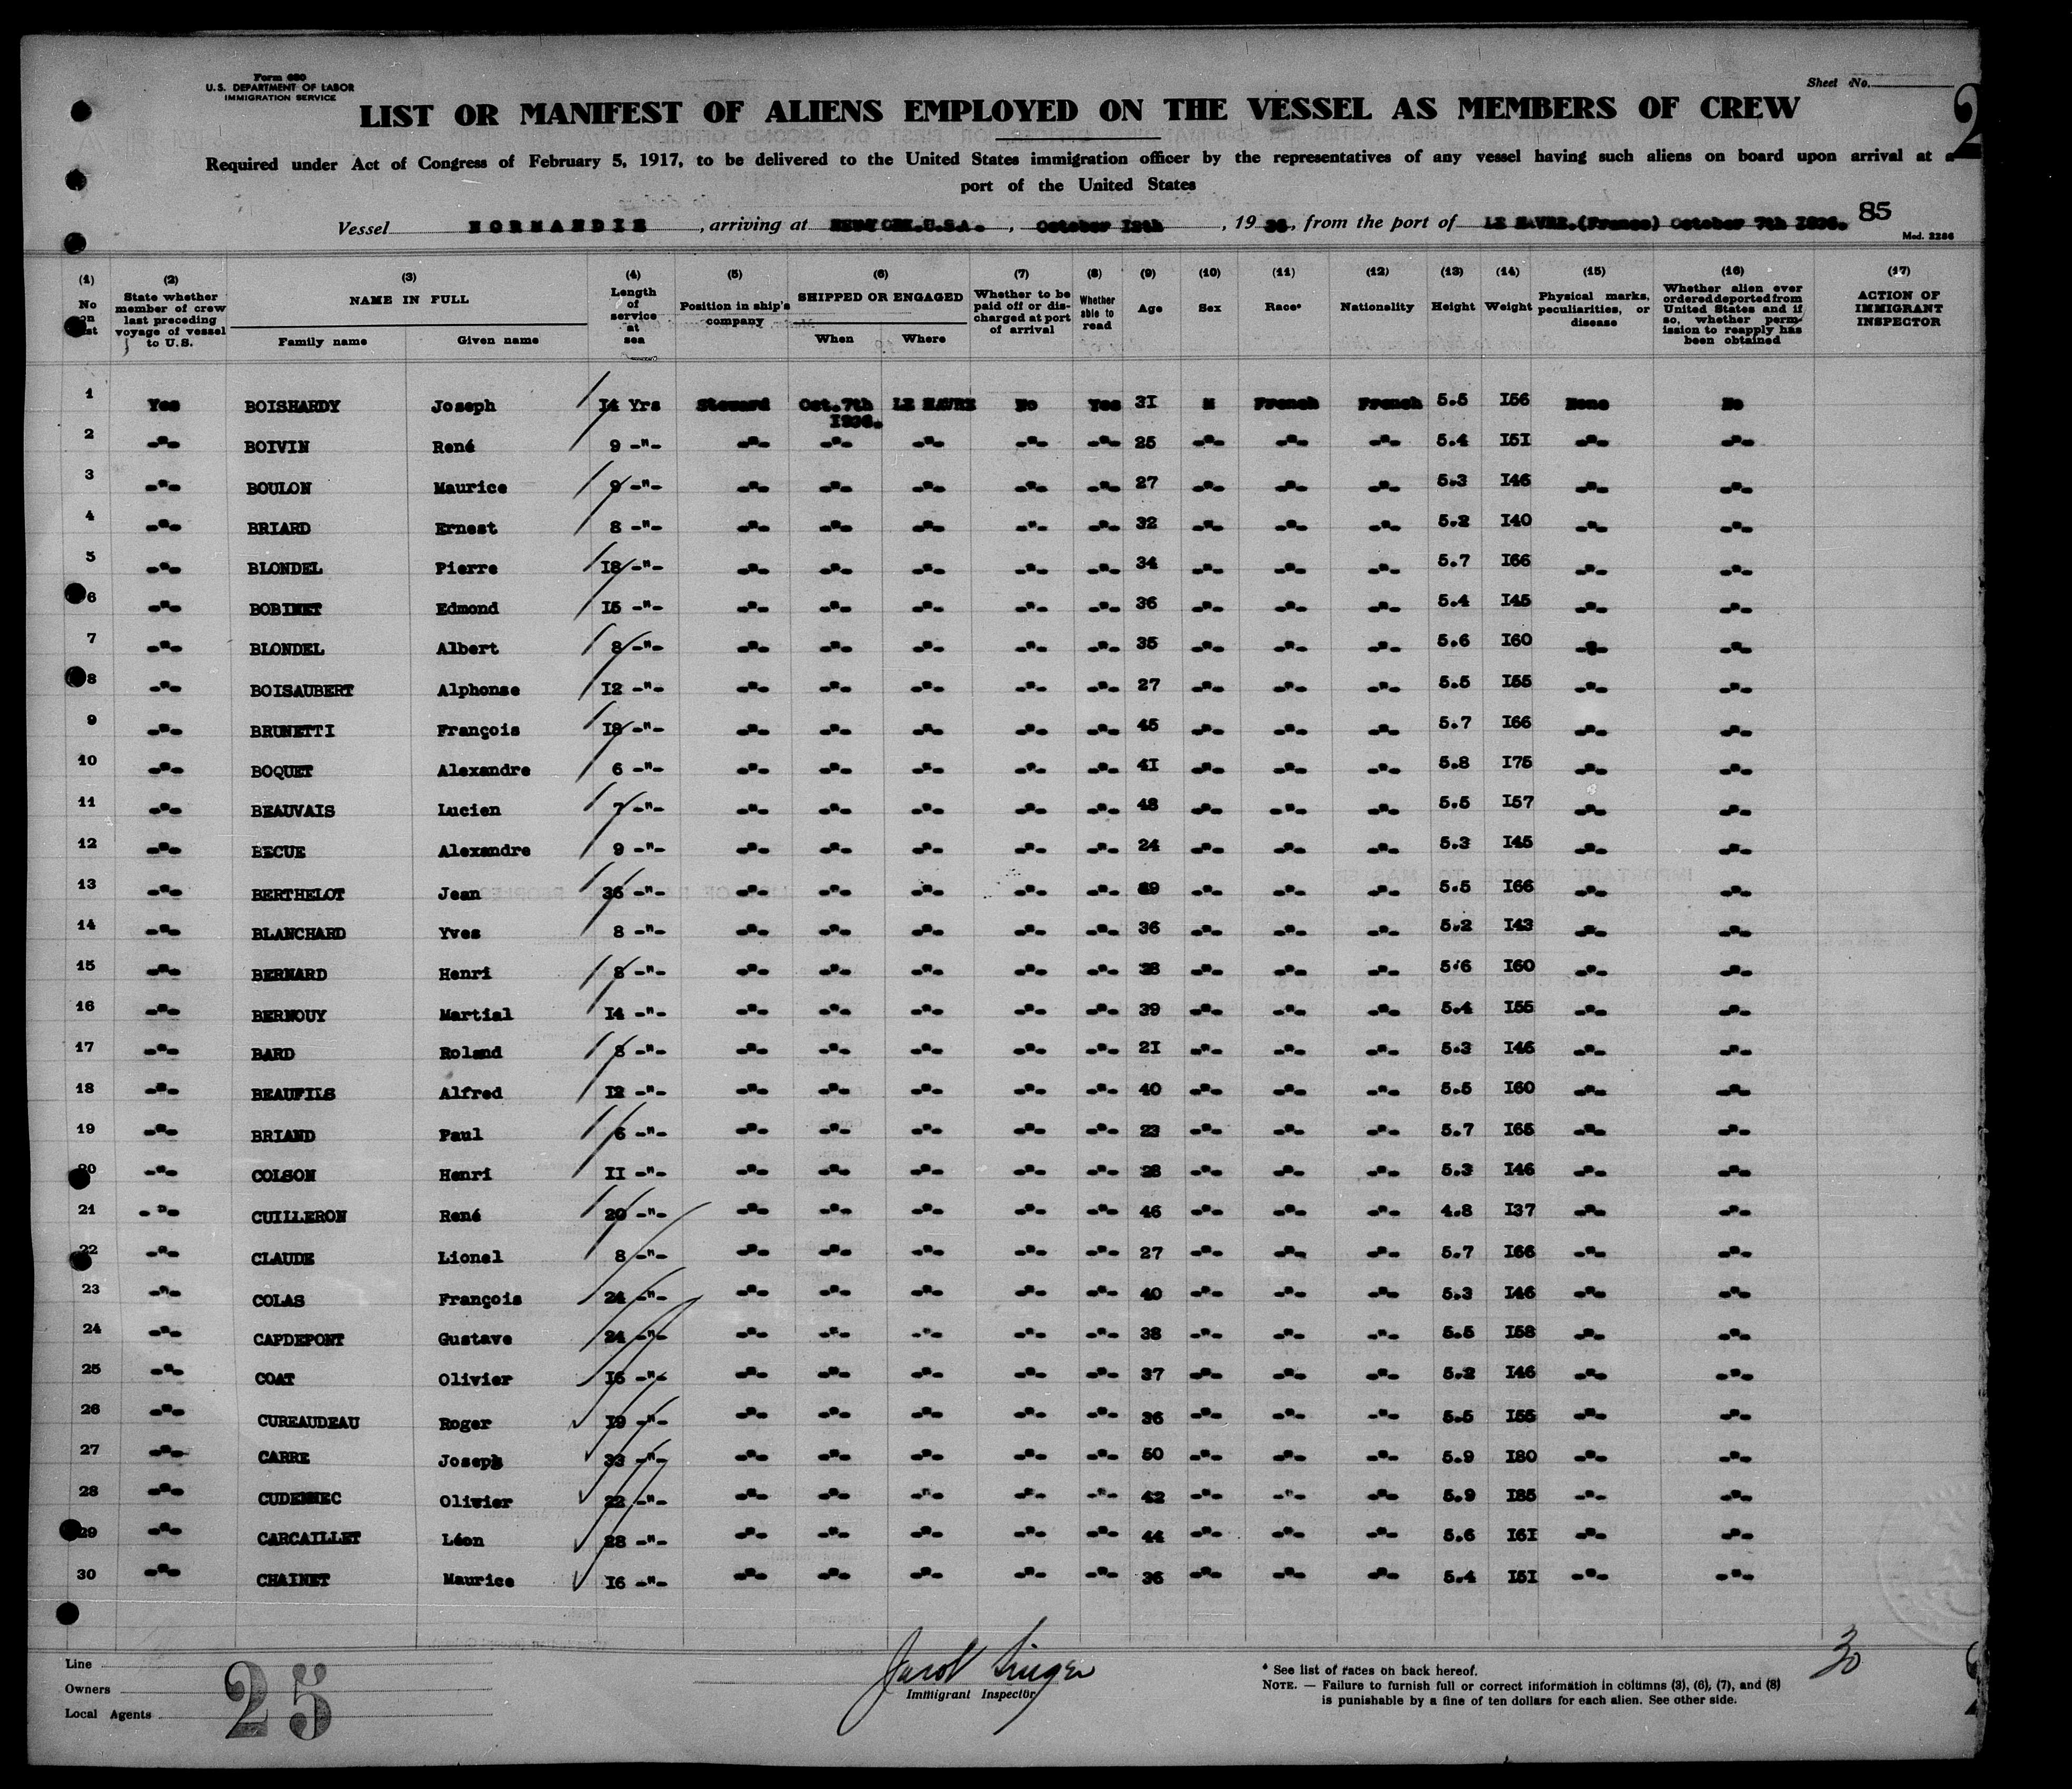 Form 680
U.S. DEPARTMENT OF LABOR
IMMIGRATION SERVICE
Sheet No.
LIST OR MANIFEST OF ALIENS EMPLOYED ON THE VESSEL AS MEMBERS OF CREW
Required under Act of Congress of February 5, 1917, to be delivered to the United States immigration officer by the representatives of any vessel having such aliens on board upon arrival at a
port of the United States
85
Vessel NORMANDIE , arriving at NEW YORK.U.S.A. , October 12th , 19 36, from the port of LE HAVRE.(France) October 7th 1936.
Mod. 2286
(1) (2) (3) (4) (5) (6) (7) (8) (9) (10) (11) (12) (13) (14) (15) (16) (17)
No on list | State whether member of crew last preceding voyage of vessel to U.S. | NAME IN FULL Family name Given name | Length of service at sea | Position in ship's company | SHIPPED OR ENGAGED When Where | Whether to be paid off or discharged at port of arrival | Whether able to read | Age | Sex | Race* | Nationality | Height | Weight | Physical marks, peculiarities, or disease | Whether alien ever ordered deported from United States and if so, whether permission to reapply has been obtained | ACTION OF IMMIGRANT INSPECTOR
1 Yes BOISHARDY Joseph I4 Yrs Steward Oct.7th I936. LE HAVRE No Yes 3I M French French 5.5 I56 None No
2 -"- BOIVIN René 9 -"- -"- -"- -"- -"- -"- 25 -"- -"- -"- 5.4 I5I -"- -"-
3 -"- BOULON Maurice 9 -"- -"- -"- -"- -"- -"- 27 -"- -"- -"- 5.3 I46 -"- -"-
4 -"- BRIARD Ernest 8 -"- -"- -"- -"- -"- -"- 32 -"- -"- -"- 5.2 I40 -"- -"-
5 -"- BLONDEL Pierre I8 -"- -"- -"- -"- -"- -"- 34 -"- -"- -"- 5.7 I66 -"- -"-
6 -"- BOBINET Edmond I5 -"- -"- -"- -"- -"- -"- 36 -"- -"- -"- 5.4 I45 -"- -"-
7 -"- BLONDEL Albert 8 -"- -"- -"- -"- -"- -"- 35 -"- -"- -"- 5.6 I60 -"- -"-
8 -"- BOISAUBERT Alphonse I2 -"- -"- -"- -"- -"- -"- 27 -"- -"- -"- 5.5 I55 -"- -"-
9 -"- BRUNETTI François I8 -"- -"- -"- -"- -"- -"- 45 -"- -"- -"- 5.7 I66 -"- -"-
10 -"- BOQUET Alexandre 6 -"- -"- -"- -"- -"- -"- 4I -"- -"- -"- 5.8 I75 -"- -"-
11 -"- BEAUVAIS Lucien 7 -"- -"- -"- -"- -"- -"- 48 -"- -"- -"- 5.5 I57 -"- -"-
12 -"- BECUE Alexandre 9 -"- -"- -"- -"- -"- -"- 24 -"- -"- -"- 5.3 I45 -"- -"-
13 -"- BERTHELOT Jean 36 -"- -"- -"- -"- -"- -"- -"- -"- -"- 5.5 I66 -"- -"-
14 -"- BLANCHARD Yves 8 -"- -"- -"- -"- -"- -"- 36 -"- -"- -"- 5.2 I43 -"- -"-
15 -"- BERNARD Henri 8 -"- -"- -"- -"- -"- -"- 38 -"- -"- -"- 5.6 I60 -"- -"-
16 -"- BERNOUY Martial I4 -"- -"- -"- -"- -"- -"- 39 -"- -"- -"- 5.4 I55 -"- -"-
17 -"- BARD Roland 8 -"- -"- -"- -"- -"- -"- 2I -"- -"- -"- 5.3 I46 -"- -"-
18 -"- BEAUFILS Alfred I2 -"- -"- -"- -"- -"- -"- 40 -"- -"- -"- 5.5 I60 -"- -"-
19 -"- BRIAND Paul 6 -"- -"- -"- -"- -"- -"- 23 -"- -"- -"- 5.7 I65 -"- -"-
20 -"- COLSON Henri II -"- -"- -"- -"- -"- -"- 28 -"- -"- -"- 5.3 I46 -"- -"-
21 -"- CUILLERON René 20 -"- -"- -"- -"- -"- -"- 46 -"- -"- -"- 4.8 I37 -"- -"-
22 -"- CLAUDE Lionel 8 -"- -"- -"- -"- -"- -"- 27 -"- -"- -"- 5.7 I66 -"- -"-
23 -"- COLAS François 24 -"- -"- -"- -"- -"- -"- 40 -"- -"- -"- 5.3 I46 -"- -"-
24 -"- CAPDEPONT Gustave 24 -"- -"- -"- -"- -"- -"- 38 -"- -"- -"- 5.5 I58 -"- -"-
25 -"- COAT Olivier I6 -"- -"- -"- -"- -"- -"- 37 -"- -"- -"- 5.2 I46 -"- -"-
26 -"- CUREAUDEAU Roger I9 -"- -"- -"- -"- -"- -"- 36 -"- -"- -"- 5.5 I55 -"- -"-
27 -"- CARRE Joseph 33 -"- -"- -"- -"- -"- -"- 50 -"- -"- -"- 5.9 I80 -"- -"-
28 -"- CUDENNEC Olivier 22 -"- -"- -"- -"- -"- -"- 42 -"- -"- -"- 5.9 I85 -"- -"-
29 -"- CARCAILLET Léon 28 -"- -"- -"- -"- -"- -"- 44 -"- -"- -"- 5.6 I6I -"- -"-
30 -"- CHAINET Maurice I6 -"- -"- -"- -"- -"- -"- 36 -"- -"- -"- 5.4 I5I -"- -"-
Line
Owners
Local Agents
25
Jacob Singer
Immigrant Inspector
30
* See list of races on back hereof.
NOTE. — Failure to furnish full or correct information in columns (3), (6), (7), and (8)
is punishable by a fine of ten dollars for each alien. See other side.